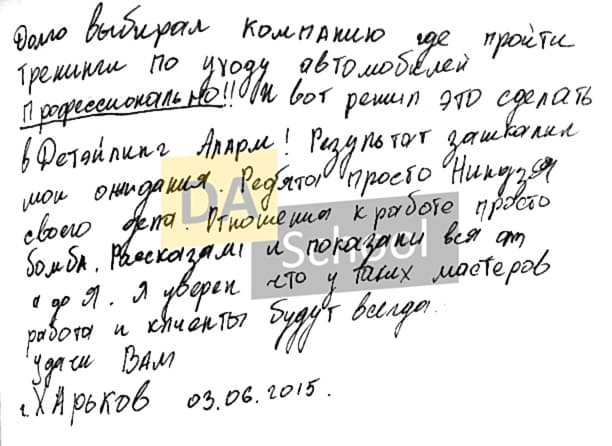 Долго выбирал компанию где пройти
тренинги по уходу автомобилей
Профессионально!! И вот решил это сделать
в Детэйлинг Аларм! Результат зашкалил
мои ожидания. Ребята просто Ниндзя
своего дела. Отношения к работе просто
бомба. Рассказали и показали вся от
а до Я. Я уверен что у таких мастеров
работа и клиенты будут всегда.
удачи ВАМ
г. Харьков 03.06.2015.
DA
School